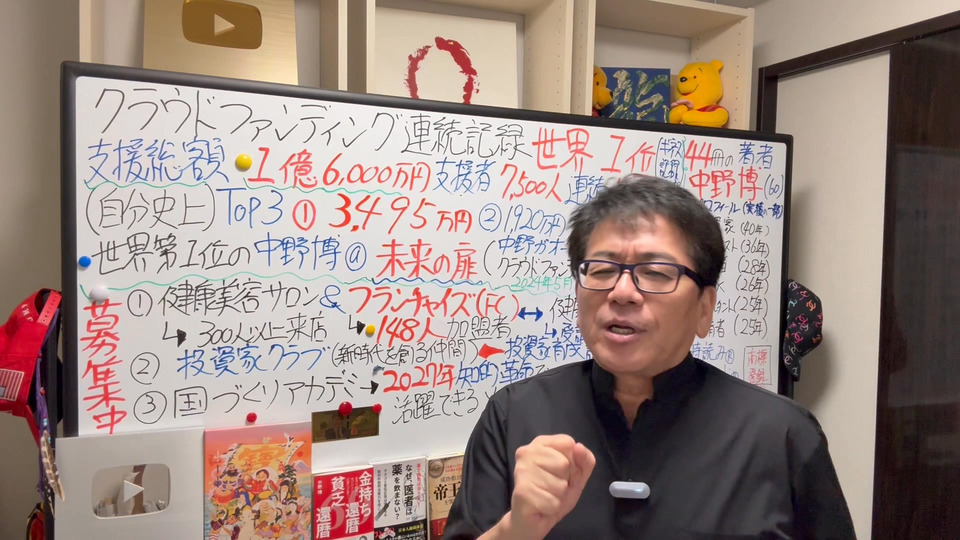 クラウドファンディング連続記録 世界1位 44冊の著者
支援総額 1億6,000万円 支援者 7,500人 連続 中野博(60)
(自分史上) Top3 ① 3,495万円 ② 1,920万円
世界第1位の中野博@ 未来の扉 (中野ガオ
クラウドファン
2024年5月
募集中
① 健康美容サロン & フランチャイズ(FC) ↔
↳ 300人以上来店 ↳ 148人加盟者
② 投資家クラブ(新時代を創る仲間)
③ 国づくりアカデミ → 2027年 知的革命で
活躍できる
(40年)
(36年)
(28年)
(26年)
(25年)
(25年)
商標
登録
金持ち
還暦
貧乏
還暦
なぜ、医者は
薬を飲まない?
帝王